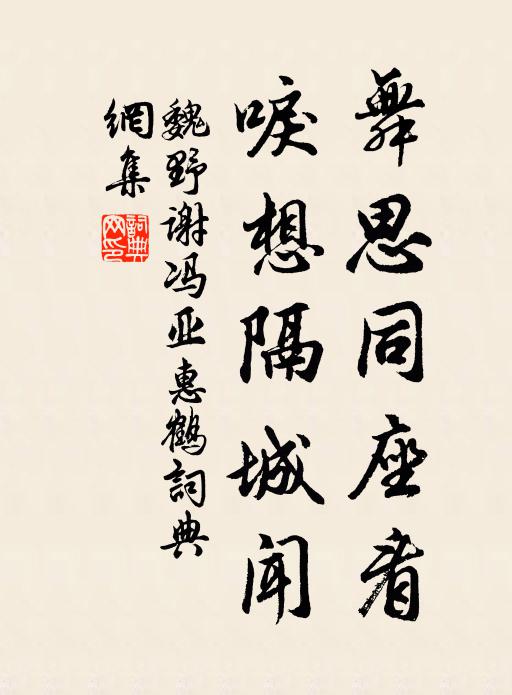 舞思同座看
唳想隔城闻
魏野谢冯亚惠鹤詞典
網集
詞典网印